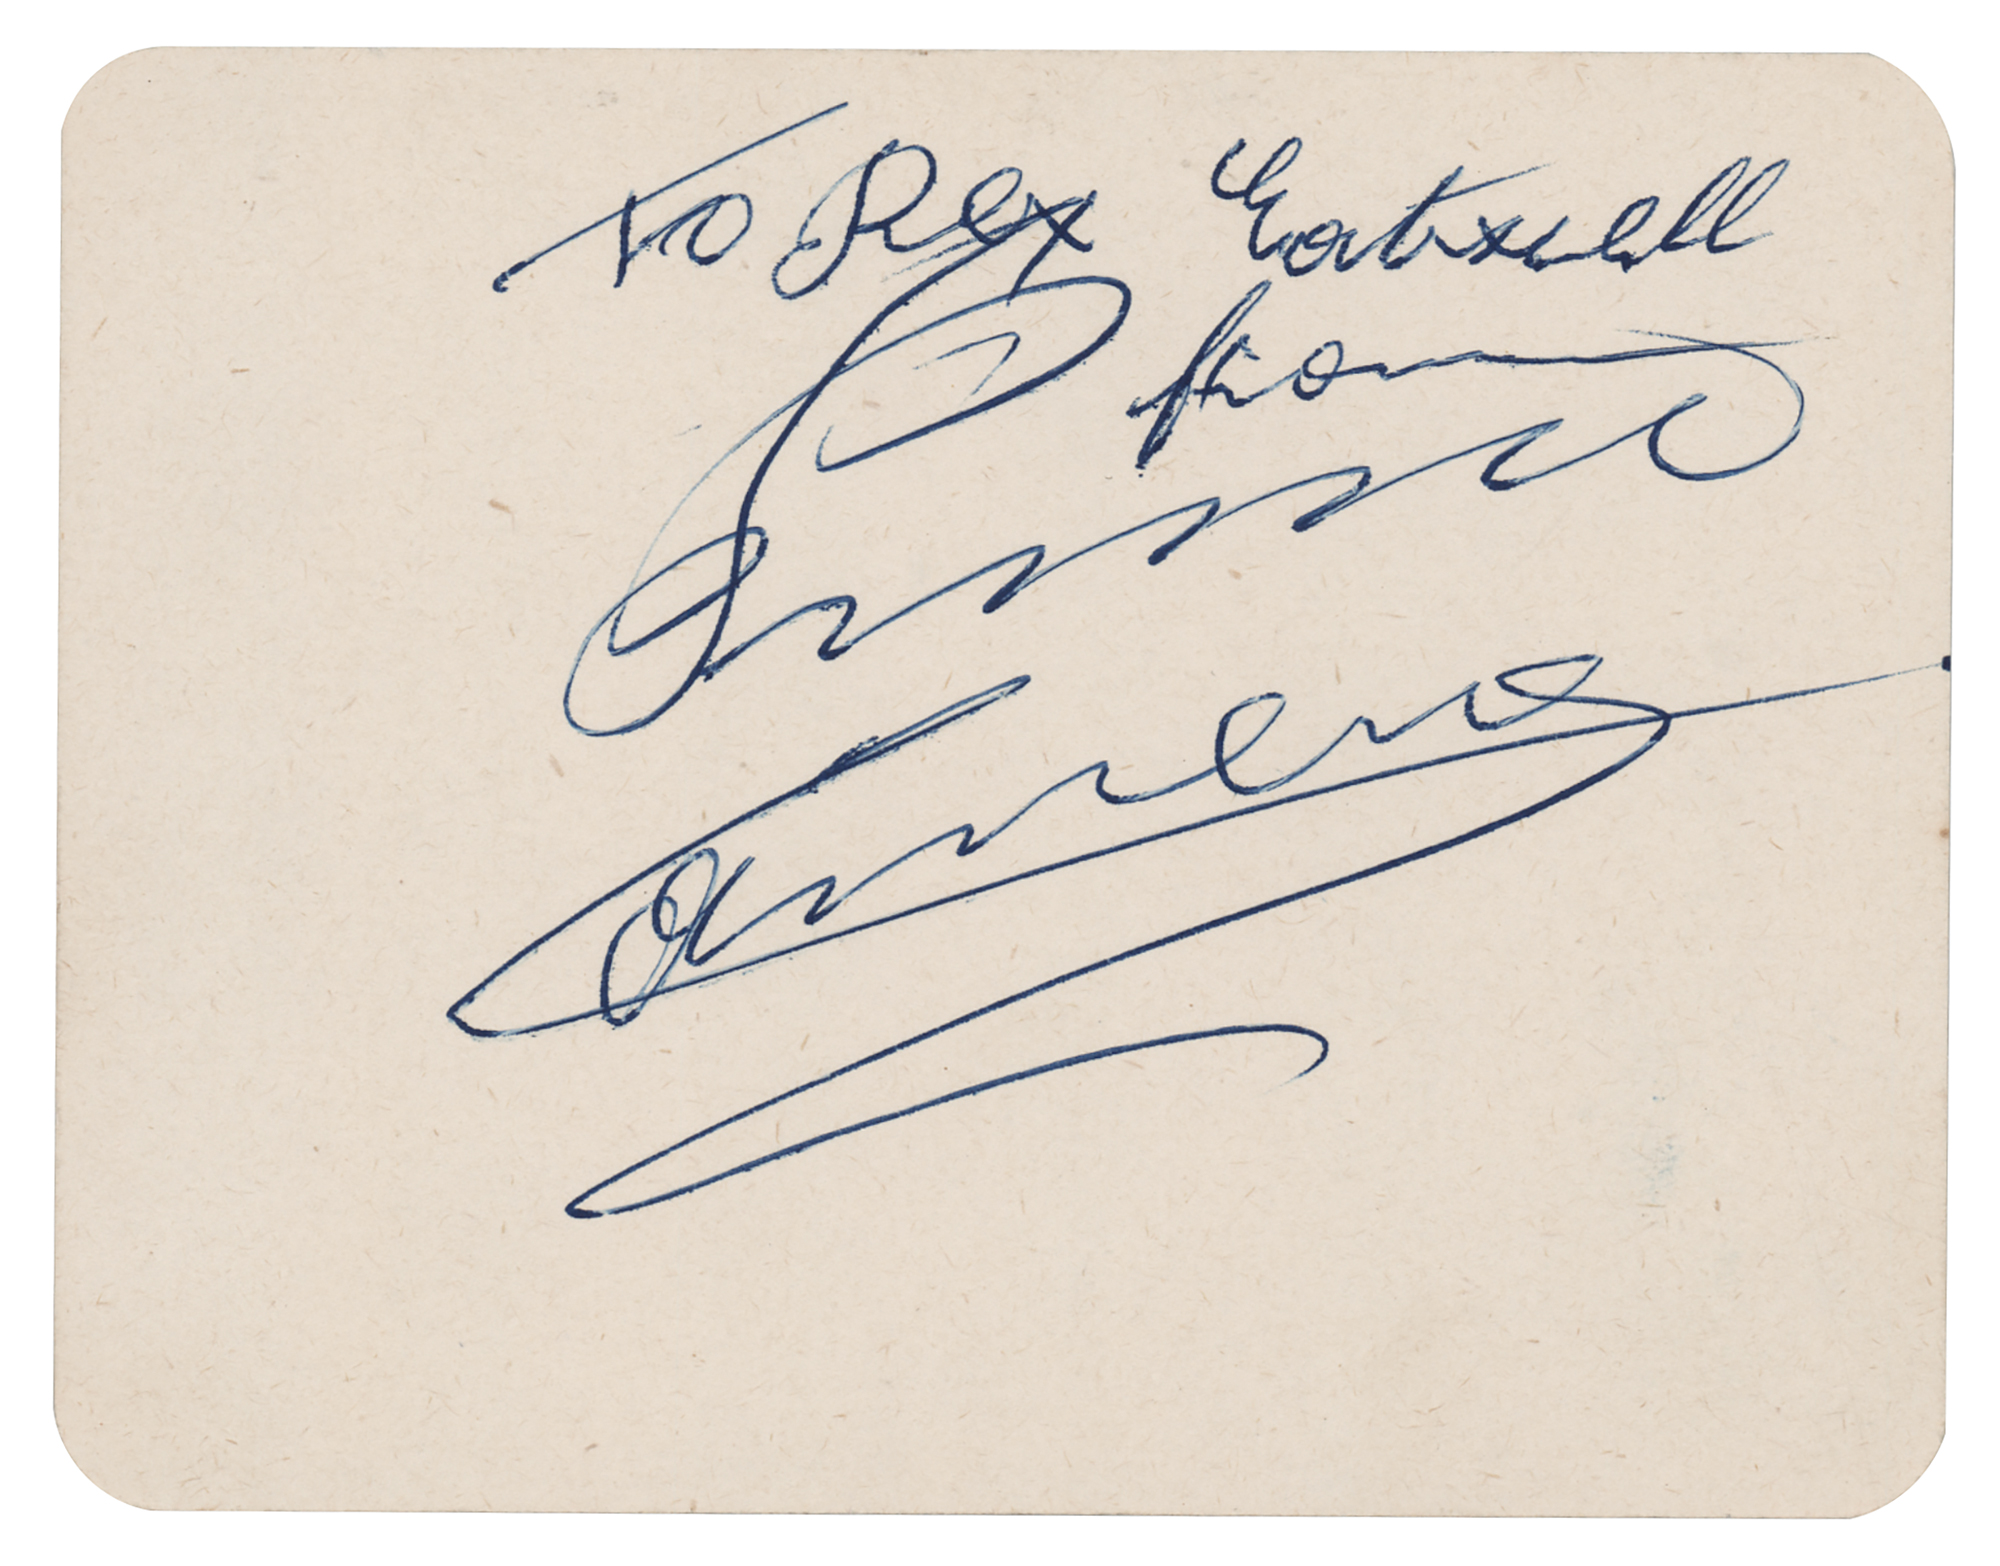 To Rex Eatwell
from
Primo
Carnera